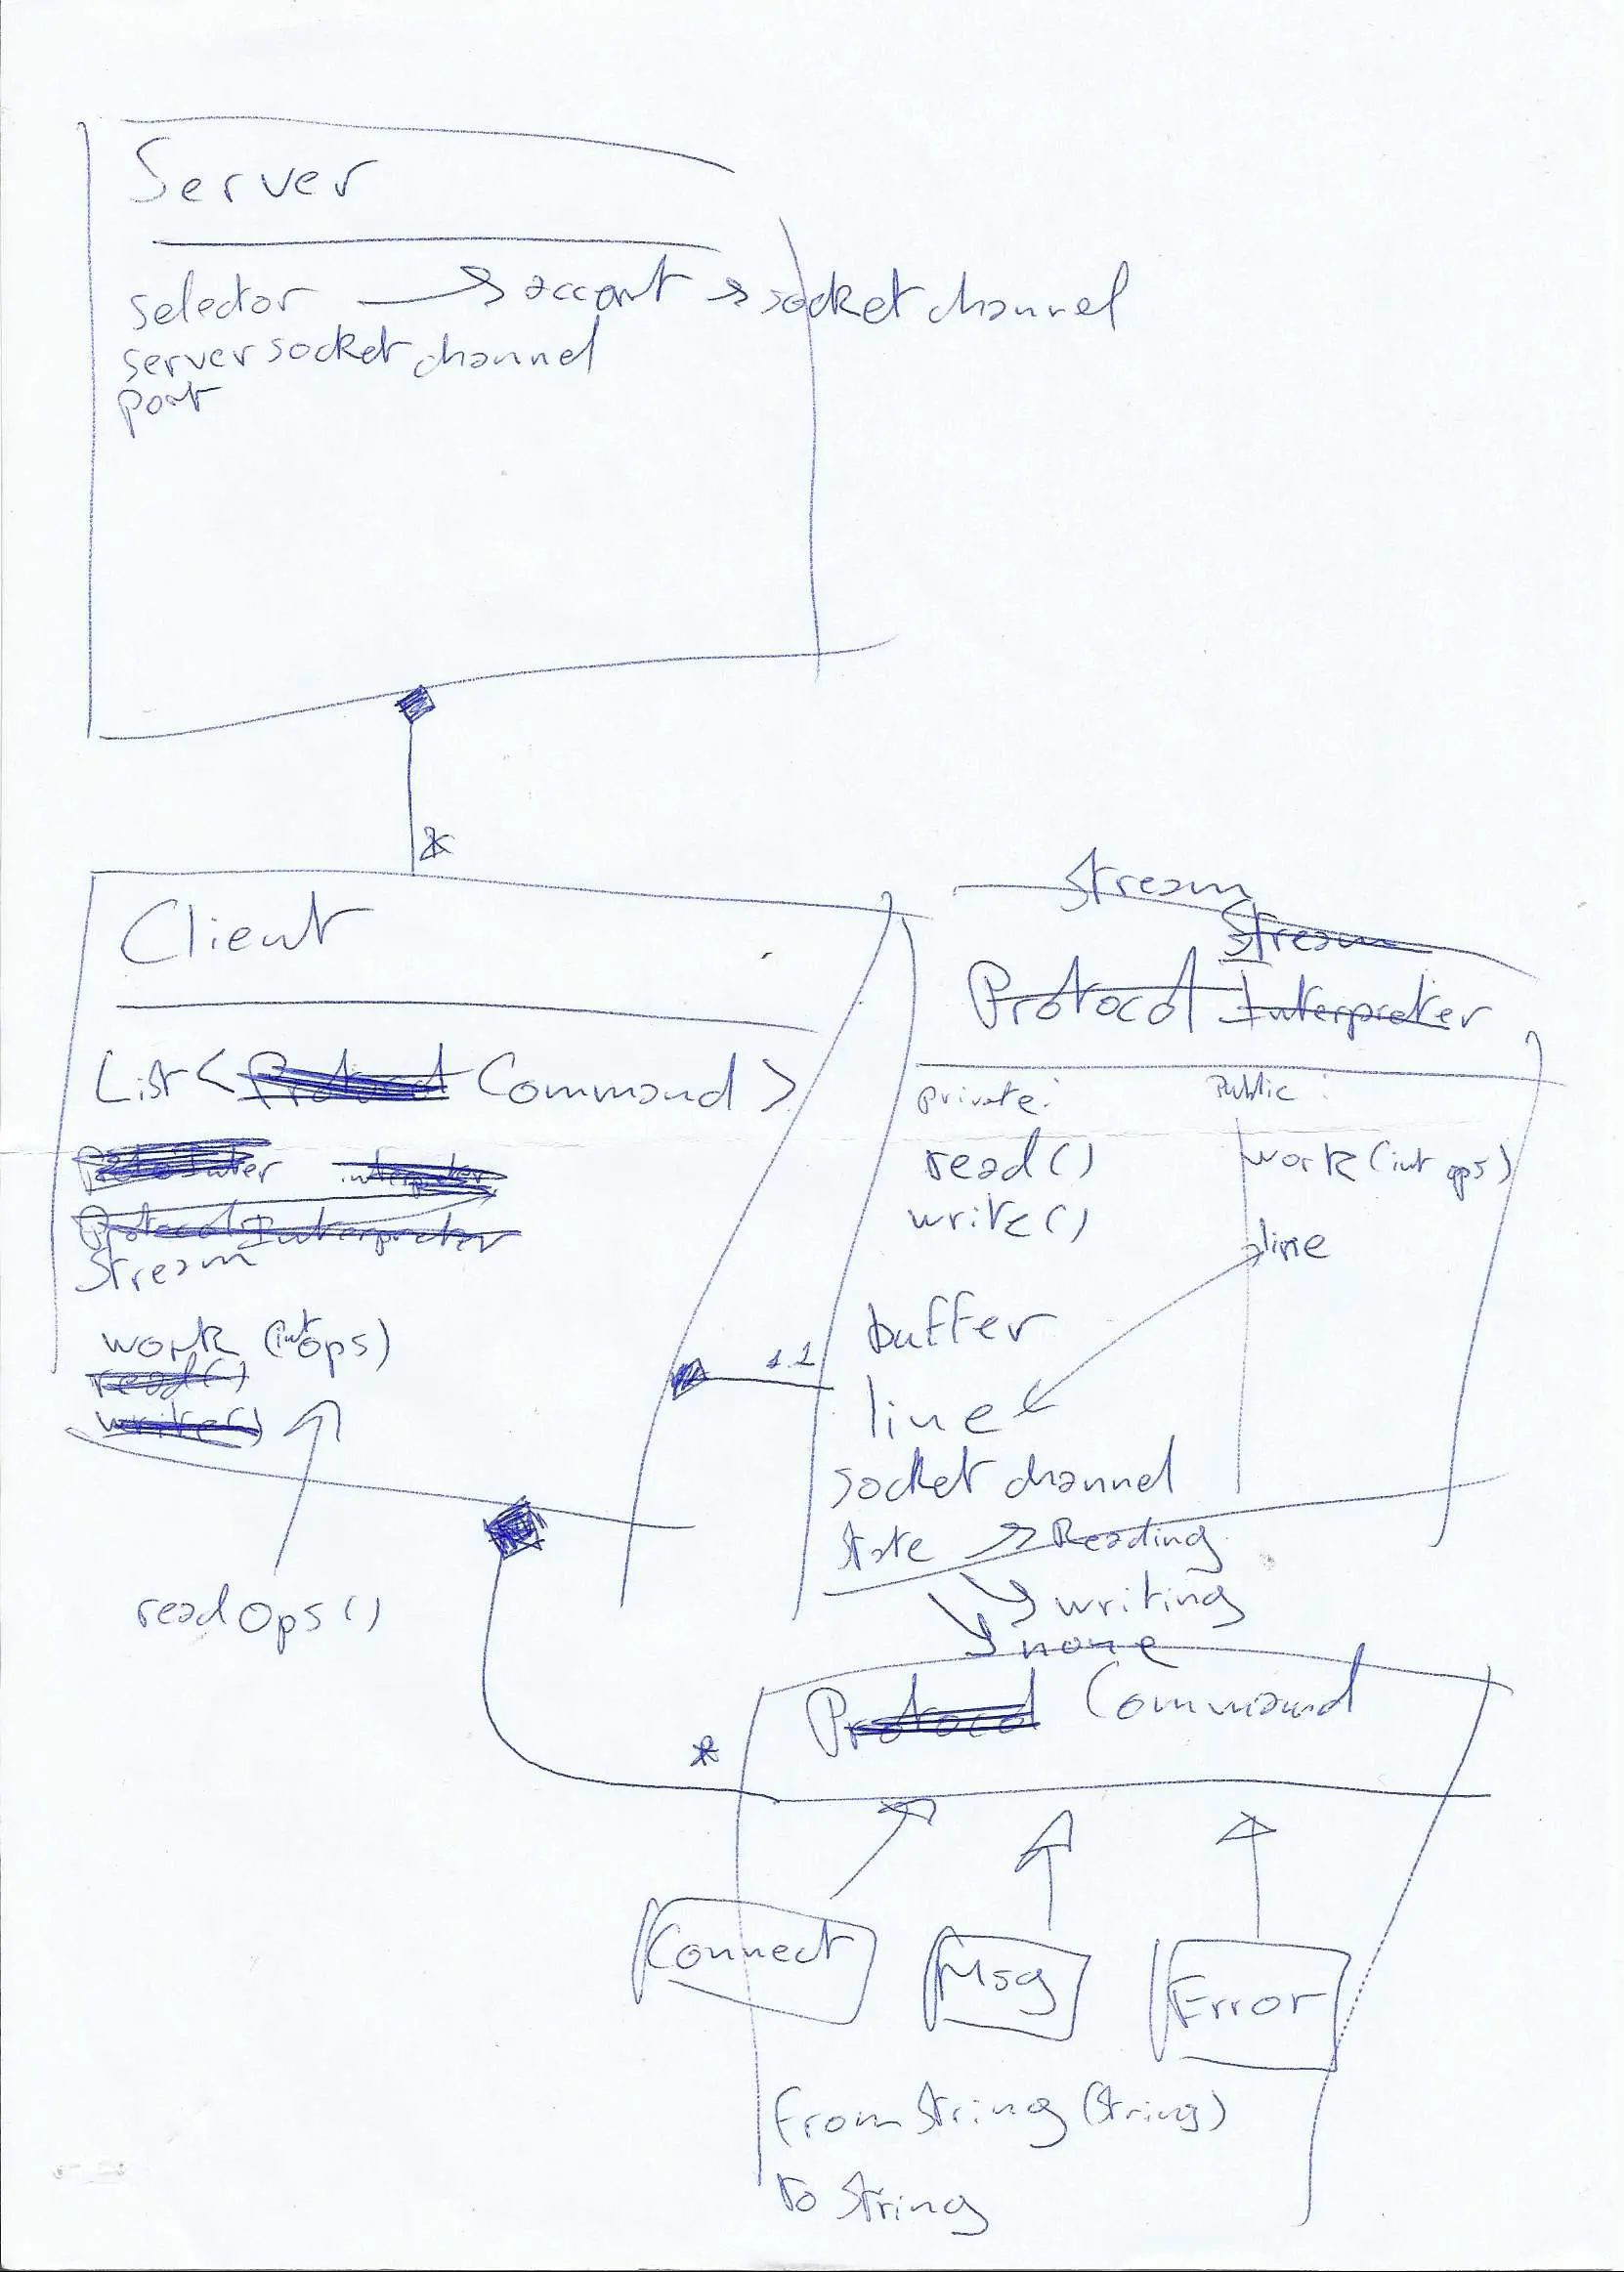 Server
selector → accept → socket channel
server socket channel
port
*
Client
List< Protocol Command >
ProtoInter interpreter
Protocol Interpreter
Stream
work (int ops)
read()
write()
readOps()
Stream
Stream
Protocol Interpreter
private: Public:
read() work (int ops)
write()
line
buffer
1..1
line
socket channel
State → Reading
→ writing
→ none
Protocol Command
*
Connect Msg Error
fromString (String)
to String